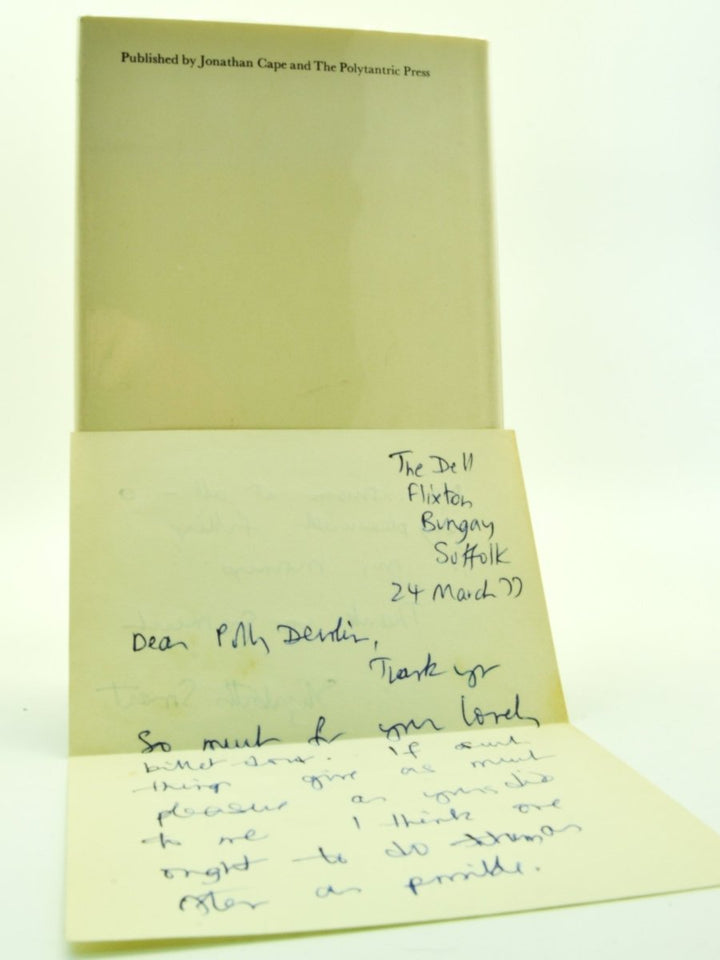 Published by Jonathan Cape and The Polytantric Press
The Dell
Flixton
Bungay
Suffolk
24 March 77
Dear Polly Devlin,
Thank you
So much for your lovely
billet doux. If such
things give as much
pleasure as yours did
to me I think one
ought to do them as
often as possible.
Elizabeth Smart